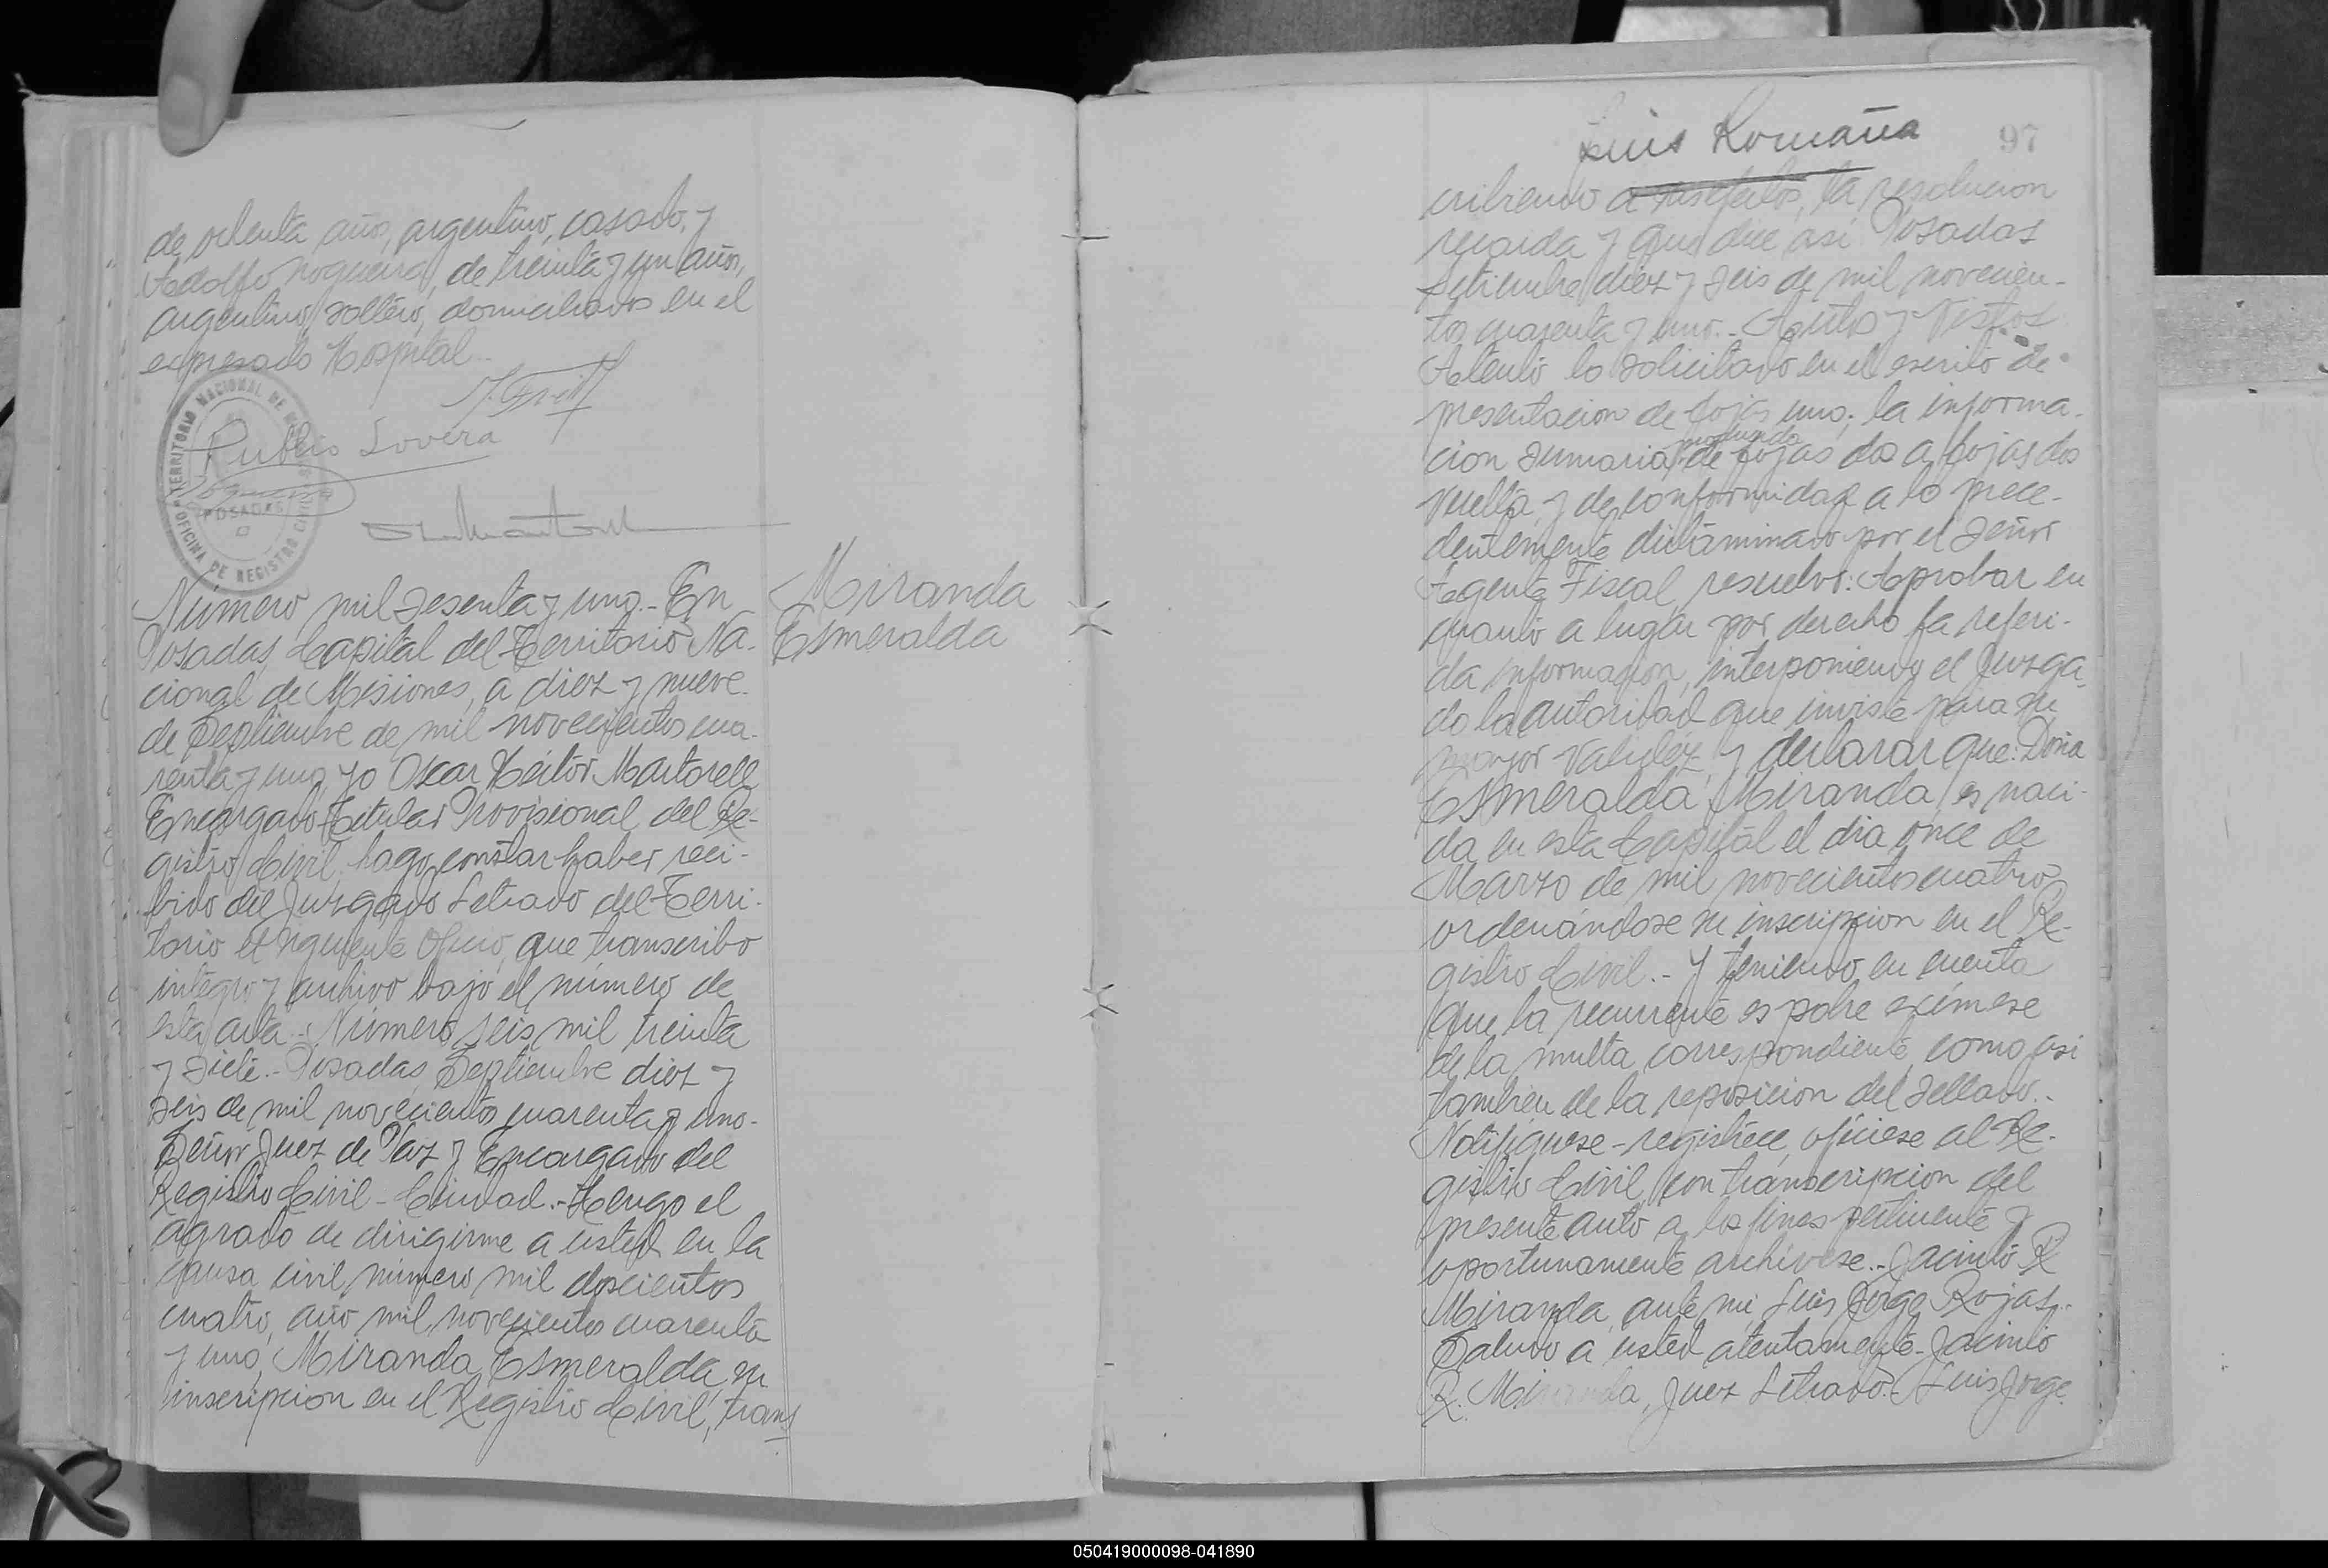 de ochenta años, argentino, casado, y
Adolfo Noguera, de treinta y un años,
argentino, soltero, domiciliados en el
expresado Hospital.
TERRITORIO NACIONAL DE
Publio Lovera
Noguera
POSADAS
OFICINA DE REGISTRO CIVIL
Número mil sesenta y uno.- En
Posadas, Capital del Territorio Na-
cional de Misiones, a diez y nueve
de Septiembre de mil novecientos cua-
renta y uno, yo Oscar Héctor Martorell
Encargado Titular Provisional del Re-
gistro Civil hago constar haber reci-
bido del Juzgado Letrado del Terri-
torio el siguiente Oficio, que transcribo
integro y archivo bajo el número de
esta acta.- Número seis mil treinta
y siete.- Posadas, Septiembre diez y
seis de mil novecientos cuarenta y uno-
Señor Juez de Paz y Encargado del
Registro Civil - Ciudad.- Tengo el
agrado de dirigirme a usted en la
causa civil número mil doscientos
cuatro, año mil novecientos cuarenta
y uno, Miranda, Esmeralda, su
inscripcion en el Registro Civil, trans
Miranda
Esmeralda
Luis Romaña
97
cribiendo a sus efectos, la resolucion
recaida y que dice asi Posadas
setiembre diez y seis de mil novecien-
tos cuarenta y uno.- Autos y Vistos
Atento lo solicitado en el escrito de
presentacion de fojas uno; la informa-
producida
cion sumaria de fojas dos a fojas dos
vuelta y de conformidad a lo prece-
dentemente dictaminado por el Señor
Agente Fiscal, resuelvo: Aprobar en
cuanto a lugar por derecho la referi-
da informacion, interponiendo el Juzga-
do la autoridad que inviste para su
mayor validéz, y declarar que: Doña
Esmeralda Miranda, es naci-
da en esta Capital el dia once de
Marzo de mil novecientos cuatro
ordenándose su inscripcion en el Re-
gistro Civil.- Y teniendo en cuenta
que la recurrente es pobre exímese
de la multa correspondiente, como asi
tambien de la reposicion del sellado.-
Notifíquese - regístrece, ofíciese al Re-
gistro Civil, con transcripcion del
presente auto a los fines pertinente y
oportunamente archívese.- Jacinto R
Miranda, ante mi, Luis Jorge Rojas.-
Saludo a usted atentamente - Jacinto
R. Miranda, Juez Letrado.- Luis Jorge
050419000098-041890